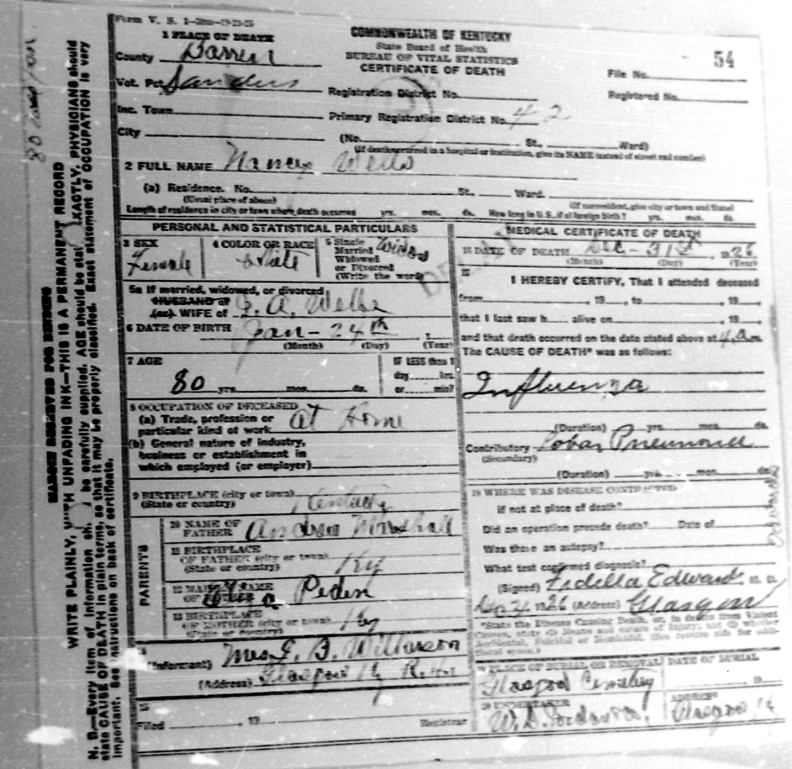 Form V. S. 1
1 PLACE OF DEATH
County Barren
Vot. Pct Sanders
Inc. Town
City
COMMONWEALTH OF KENTUCKY
State Board of Health
BUREAU OF VITAL STATISTICS
CERTIFICATE OF DEATH
54
File No.
Registration District No.
Registered No.
Primary Registration District No. 42
(No. St., Ward)
(If death occurred in a hospital or institution, give its NAME instead of street and number)
2 FULL NAME Nancy Wells
(a) Residence. No. St., Ward.
(Usual place of abode) (If nonresident, give city or town and State)
Length of residence in city or town where death occurred yrs. mos. ds. How long in U. S., if of foreign birth? yrs. mos. ds.
PERSONAL AND STATISTICAL PARTICULARS
3 SEX
Female
4 COLOR OR RACE
White
5 Single
Married
Widowed
or Divorced
(Write the word)
Widow
5a If married, widowed, or divorced
HUSBAND of
(or) WIFE of J. A. Wells
6 DATE OF BIRTH Jan - 24th
(Month) (Day) (Year)
7 AGE
80 yrs. mos. ds.
If LESS than 1
day hrs.
or min?
8 OCCUPATION OF DECEASED
(a) Trade, profession or
particular kind of work At Home
(b) General nature of industry,
business or establishment in
which employed (or employer)
9 BIRTHPLACE (city or town)
(State or country) Kentucky
PARENTS
10 NAME OF
FATHER Andrew Marshall
11 BIRTHPLACE
OF FATHER (city or town)
(State or country) Ky
12 MAIDEN NAME
OF MOTHER Peden
13 BIRTHPLACE
OF MOTHER (city or town)
(State or country) Ky
14
(Informant) Mrs J. B. Wilkerson
(Address) Glasgow Ky
15
Filed , 19 Registrar
MEDICAL CERTIFICATE OF DEATH
16 DATE OF DEATH Dec - 31st 1926
(Month) (Day) (Year)
17
I HEREBY CERTIFY, That I attended deceased
from , 19 , to , 19 ,
that I last saw h alive on , 19 ,
and that death occurred on the date stated above at 4 a m.
The CAUSE OF DEATH* was as follows:
Influenza
(Duration) yrs. mos. ds.
Contributory Lobar Pneumonia
(Secondary)
(Duration) yrs. mos. ds.
18 WHERE WAS DISEASE CONTRACTED
if not at place of death?
Did an operation precede death? Date of
Was there an autopsy?
What test confirmed diagnosis?
(Signed) Fidella Edwards M. D.
1926 (Address) Glasgow
*State the Disease Causing Death, or, in deaths from Violent
Causes, state (1) Means and nature of Injury; and (2) whether
Accidental, Suicidal or Homicidal. (See reverse side for additional space.)
19 PLACE OF BURIAL OR REMOVAL DATE OF BURIAL
Glasgow Cemetery 19
20 UNDERTAKER ADDRESS
Glasgow Ky
MARGIN RESERVED FOR BINDING
WRITE PLAINLY, WITH UNFADING INK—THIS IS A PERMANENT RECORD
N. B.—Every item of information should be carefully supplied. AGE should be stated EXACTLY. PHYSICIANS should
state CAUSE OF DEATH in plain terms, so that it may be properly classified. Exact statement of OCCUPATION is very
important. See instructions on back of certificate.